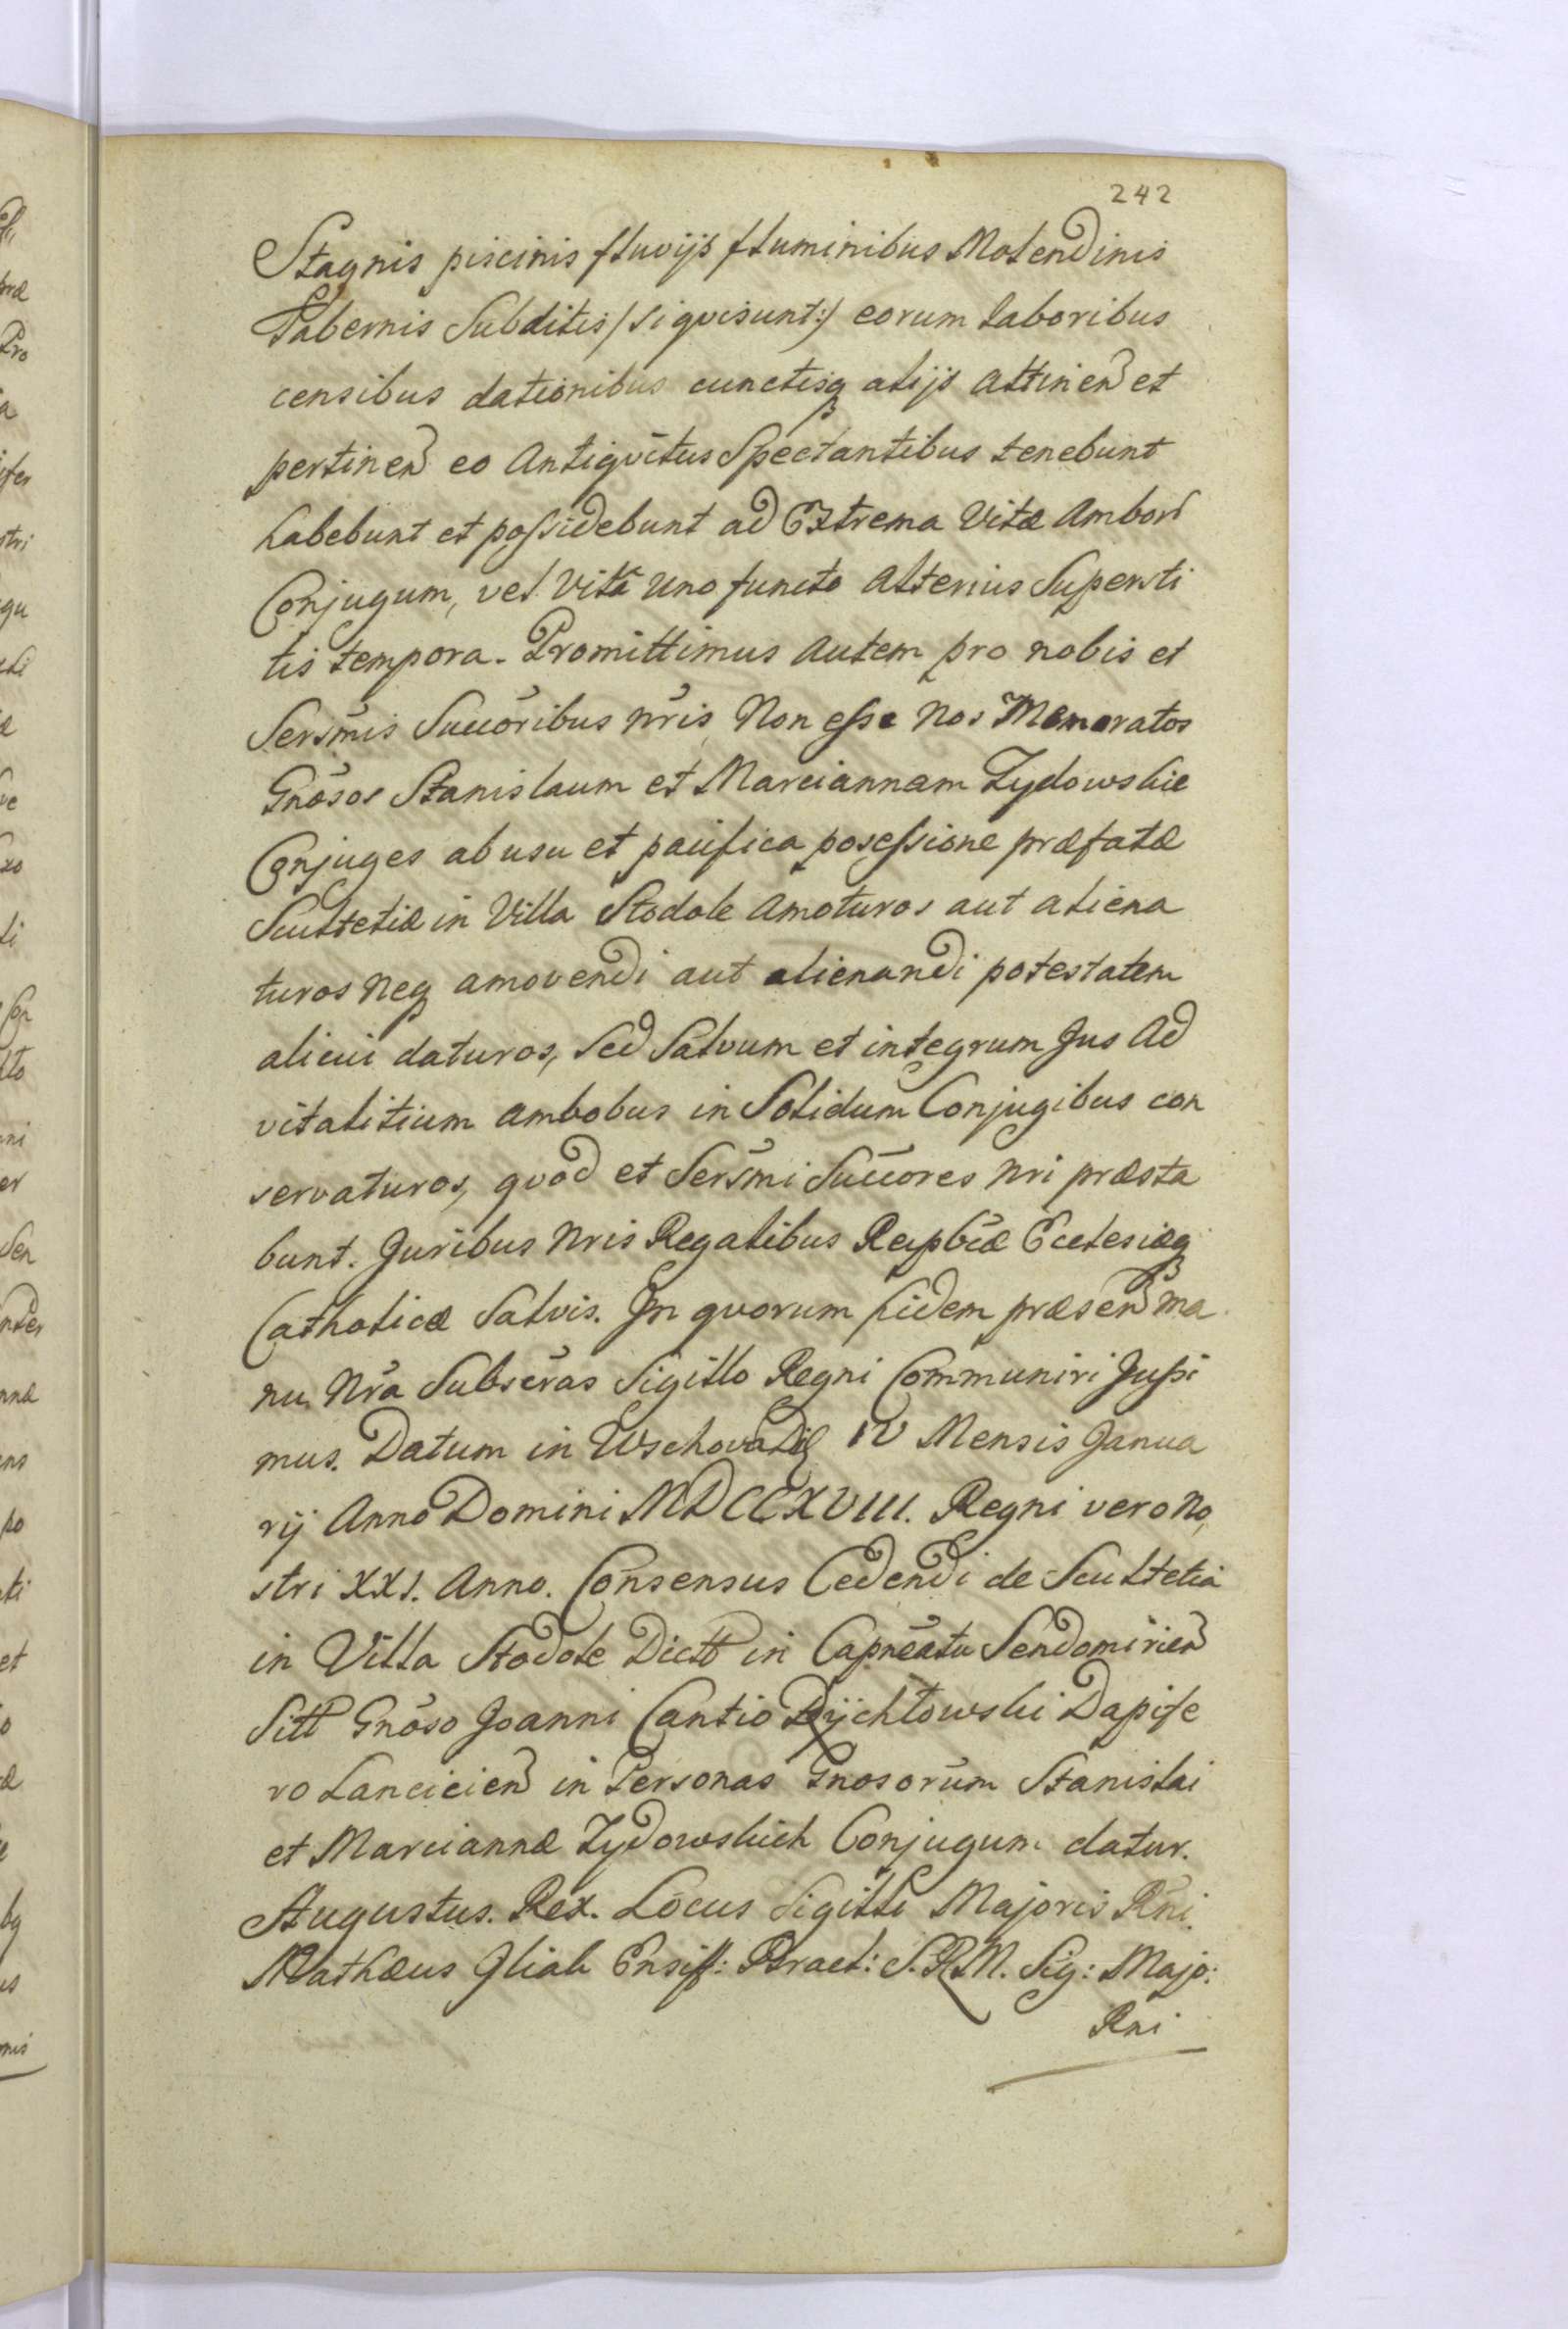 242
Stagnis piscinis fluvijs fluminibus Molendinis
Tabernis Subditis /si qvi sunt:/ eorum laboribus
censibus dationibus cunctisq alijs attinen et
pertinen eo Antiqvitus Spectantibus tenebunt
habebunt et possidebunt ad Extrema Vitæ Ambor
Conjugum, vel Vitâ uno functo Alterius Supersti
tis tempora. Promittimus autem pro nobis et
Sersmis Succoribus nris Non esse Nos Memoratos
Gnosos Stanislaum et Mareiannam Zydowskie
Conjuges ab usu et pacifica posessione præfatæ
Scultetiæ in Villa Stodole amoturos aut aliena
turos neq amovendi aut alienandi potestatem
alicui daturos, sed Salvum et integrum Jus Ad
vitalitium ambobus in Solidum Conjugibus con
servaturos, qvod et Sersmi Succores nri præsta
bunt. Juribus Nris Regalibus Reipbcæ Eclesiæq
Catholicæ Salvis. In qvorum fidem præsen ma
nu Nra Subscras Sigillo Regni Communiri Jussi
mus. Datum in Wschova Die IV Mensis Janua
rij Anno Domini MDCCXVIII. Regni vero No
stri XXI. Anno. Consensus Cedendi de Scultetia
in Villa Stodole Dictt in Capneatu Sendomirien
Sitt Gnoso Joanni Cantio Dychlowski Dapife
ro Lancicien in Personas Gnosorum Stanislai
et Marciannæ Zydowskich Conjugum datur.
Augustus. Rex. Locus Sigilli Majoris Rni.
Mathæus Gliah Ensiff: Bract: S.R.M. Sig: Majo:
Rni